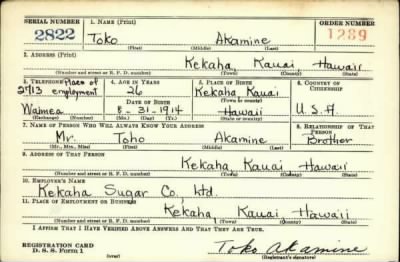 SERIAL NUMBER 1. NAME (Print) ORDER NUMBER
2822 Toko Akamine 1289
(First) (Middle) (Last)
2. ADDRESS (Print)
Kekaha, Kauai, Hawaii
(Number and street or R. F. D. number) (Town) (County) (State)
3. TELEPHONE place of 4. AGE IN YEARS 5. PLACE OF BIRTH 6. COUNTRY OF
2713 employment 26 Kekaha Kauai CITIZENSHIP
DATE OF BIRTH (Town or county)
Waimea 31, 1914 Hawaii U.S.A.
(Exchange) (Number) (Mo.) (Day) (Yr.) (State or country)
7. NAME OF PERSON WHO WILL ALWAYS KNOW YOUR ADDRESS 8. RELATIONSHIP OF THAT PERSON
Mr. Toho Akamine Brother
(Mr., Mrs., Miss) (First) (Middle) (Last)
9. ADDRESS OF THAT PERSON
Kekaha, Kauai Hawaii
(Number and street or R. F. D. number) (Town) (County) (State)
10. EMPLOYER'S NAME
Kekaha Sugar Co, Ltd.
11. PLACE OF EMPLOYMENT OR BUSINESS
Kekaha, Kauai Hawaii
(Number and street or R. F. D. number) (Town) (County) (State)
I AFFIRM THAT I HAVE VERIFIED ABOVE ANSWERS AND THAT THEY ARE TRUE.
REGISTRATION CARD Toko Akamine
D. S. S. Form 1 (over) (Registrant's signature)